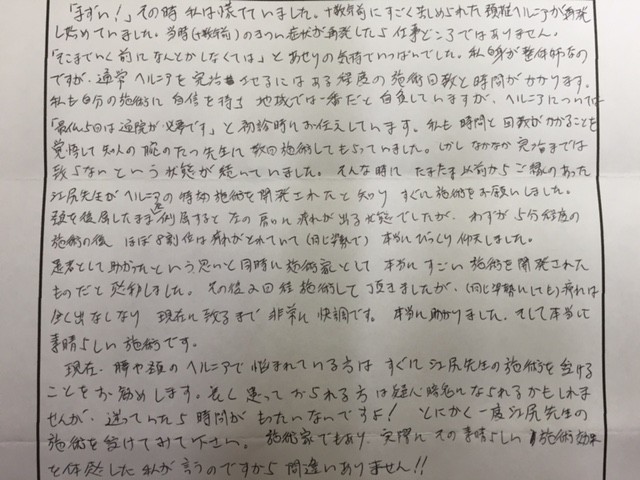 「まずい！」その時 私は慌てていました。十数年前にすごく苦しめられた頚椎ヘルニアが再発
し始めていました。当時(十数年前)のきつい症状が再発したら仕事どころではありません。
「そこまでいく前になんとかしなくては」とあせりの気持ていっぱいでした。私自身が整体師なの
ですが、通常ヘルニアを完治させるにはある程度の施術回数と時間がかかります。
私も自分の施術に自信を持ち 地域では一番だと自負していますが、ヘルニアについては
「最低5回は通院が必要です」と初診時にお伝えしています。私も時間と回数がかかることを
覚悟して知人の腕のたつ先生に数回施術してもらっていました。しかしなかなか完治までは
至らないという状態が続いていました。そんな時に たまたま以前からご縁のあった
江尻先生がヘルニアの特効施術を開発されたと知り すぐに施術をお願いしました。
頚を後屈したまま左側屈すると左の肩に痛れが出る状態でしたが、わずが5分程度の
施術の後 ほぼ8割位は痛れがとれていて(同じ姿勢で) 本当にびっくり仰天しました。
患者として助かったという思いと同時に施術家として 本当にすごい施術を開発された
ものだと感動しました。その後2回程施術して頂きましたが、(同じ姿勢にしても)痛れは
全く出なくなり 現在に致るまで 非常に快調です。本当に助かりました。そして本当に
素晴らしい施術です。
現在、腰や頚のヘルニアで悩まれている方は すぐに江尻先生の施術を受ける
ことをお勧めします。長く患っておられる方は疑心暗鬼になられるかもしれま
せんが、迷っていたら時間がもったいないですよ！ とにかく一度江尻先生の
施術を受けてみて下さい。施術家でもあり、実際にその素晴らしい施術効果
を体感した私が言うのですから間違いありません!!